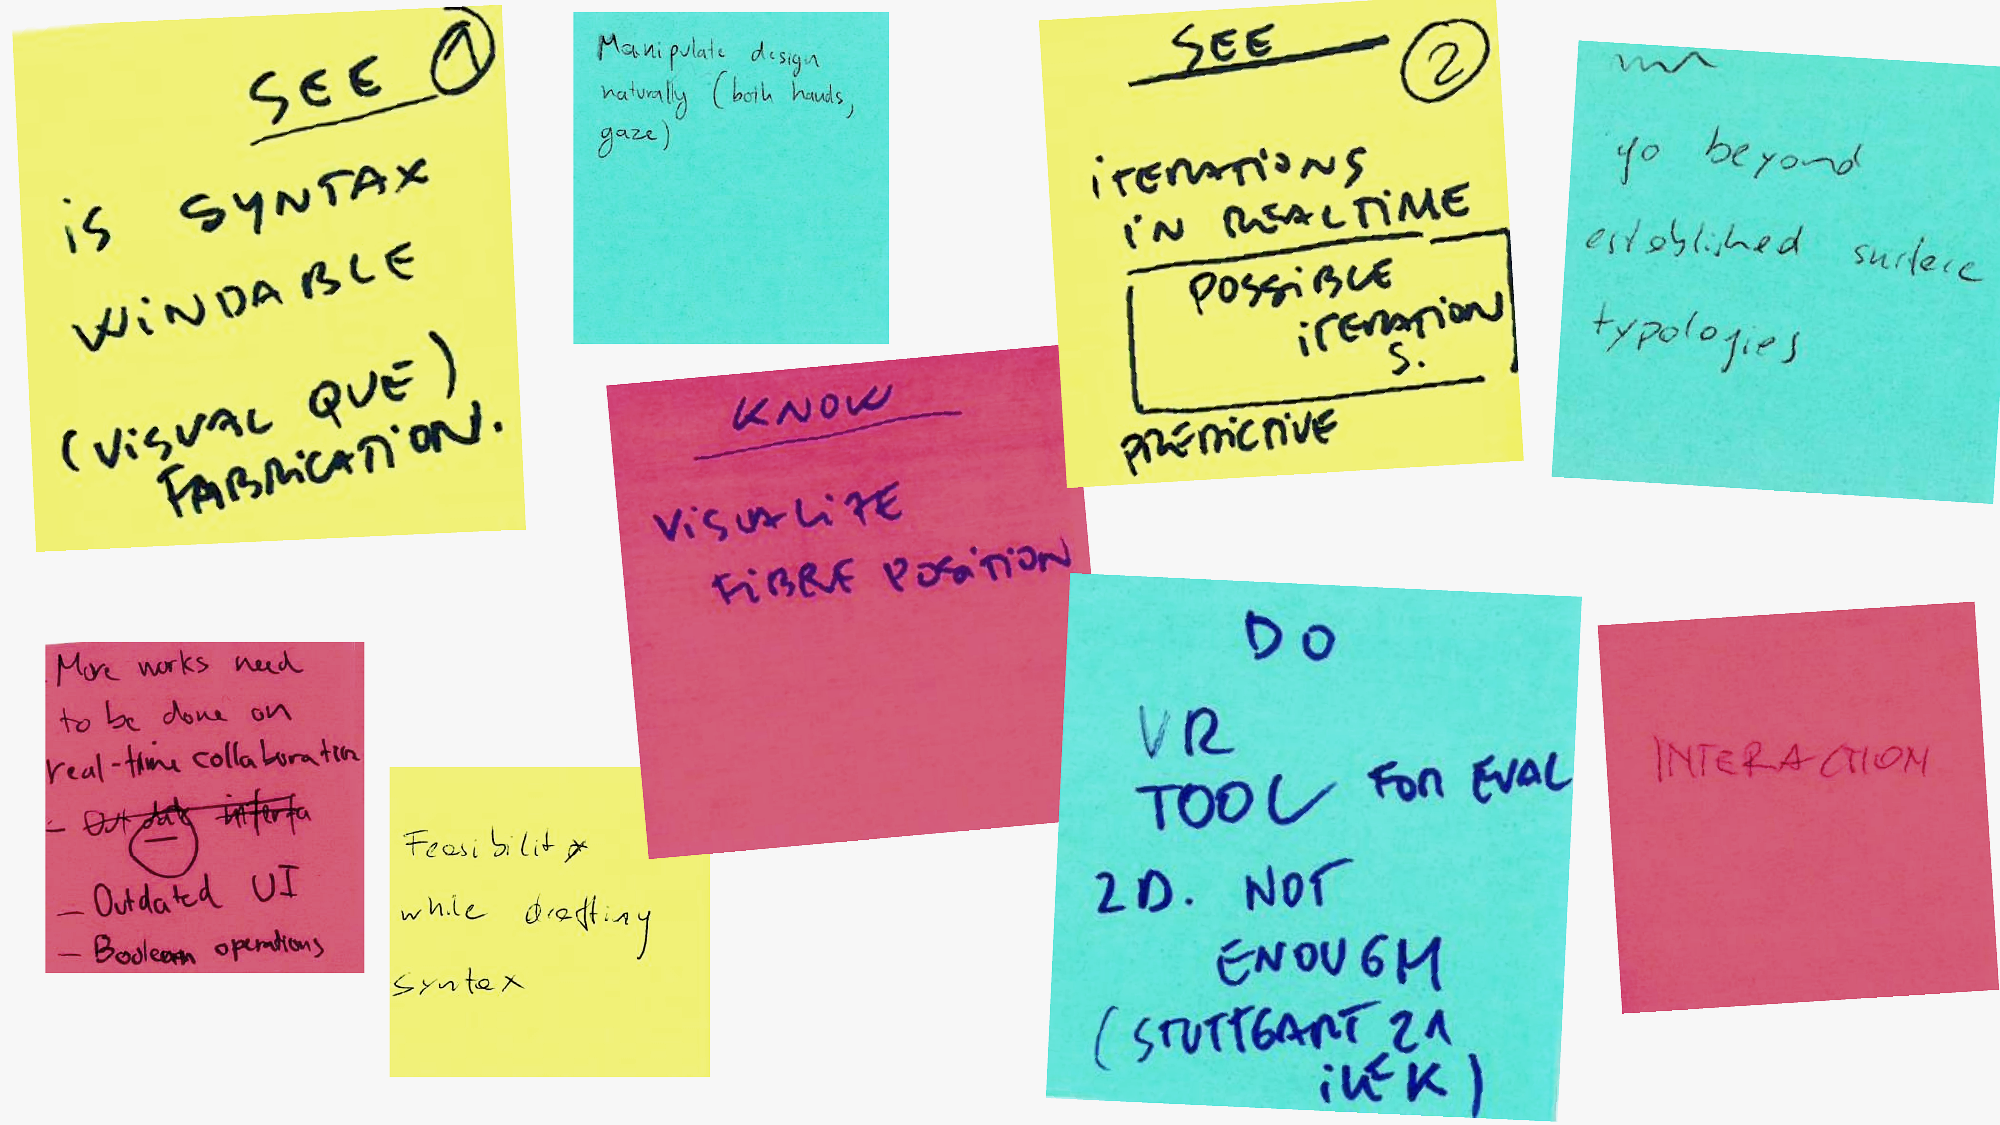 SEE 1
is SYNTAX
WiNDABLE
(ViSUAL QUE)
FABRiCATiON.
Manipulate design
naturally (both hands,
gaze)
SEE 2
iTERATiONS
iN REALTiME
POSSiBLE
iTERATION
S.
PREDiCTiVE
go beyond
established surface
typologies
KNOW
ViSUALiZE
FiBRE POSiTiON
More works need
to be done on
real-time collaboration
- Out dat interfa
- Outdated UI
- Boolean operations
Feasibility
while drafting
syntax
DO
VR
TOOL FOR EVAL
2D. NOT
ENOUGH
(STUTTGART 21
iLEK)
INTERACTION